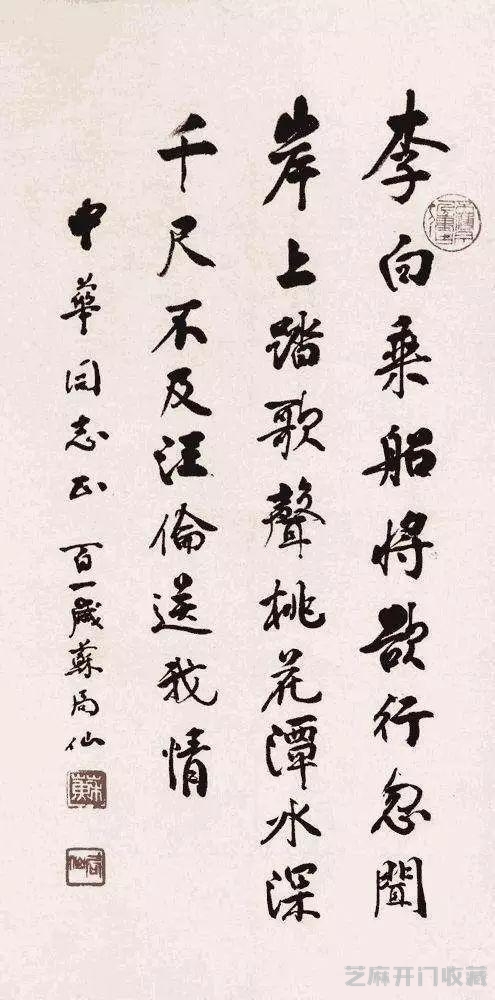 李白乗船将欲行忽聞
岸上踏歌聲桃花潭水深
千尺不及汪倫送我情
中華同志正 百一歲蘇局仙
蘇
局仙
芝麻开门收藏